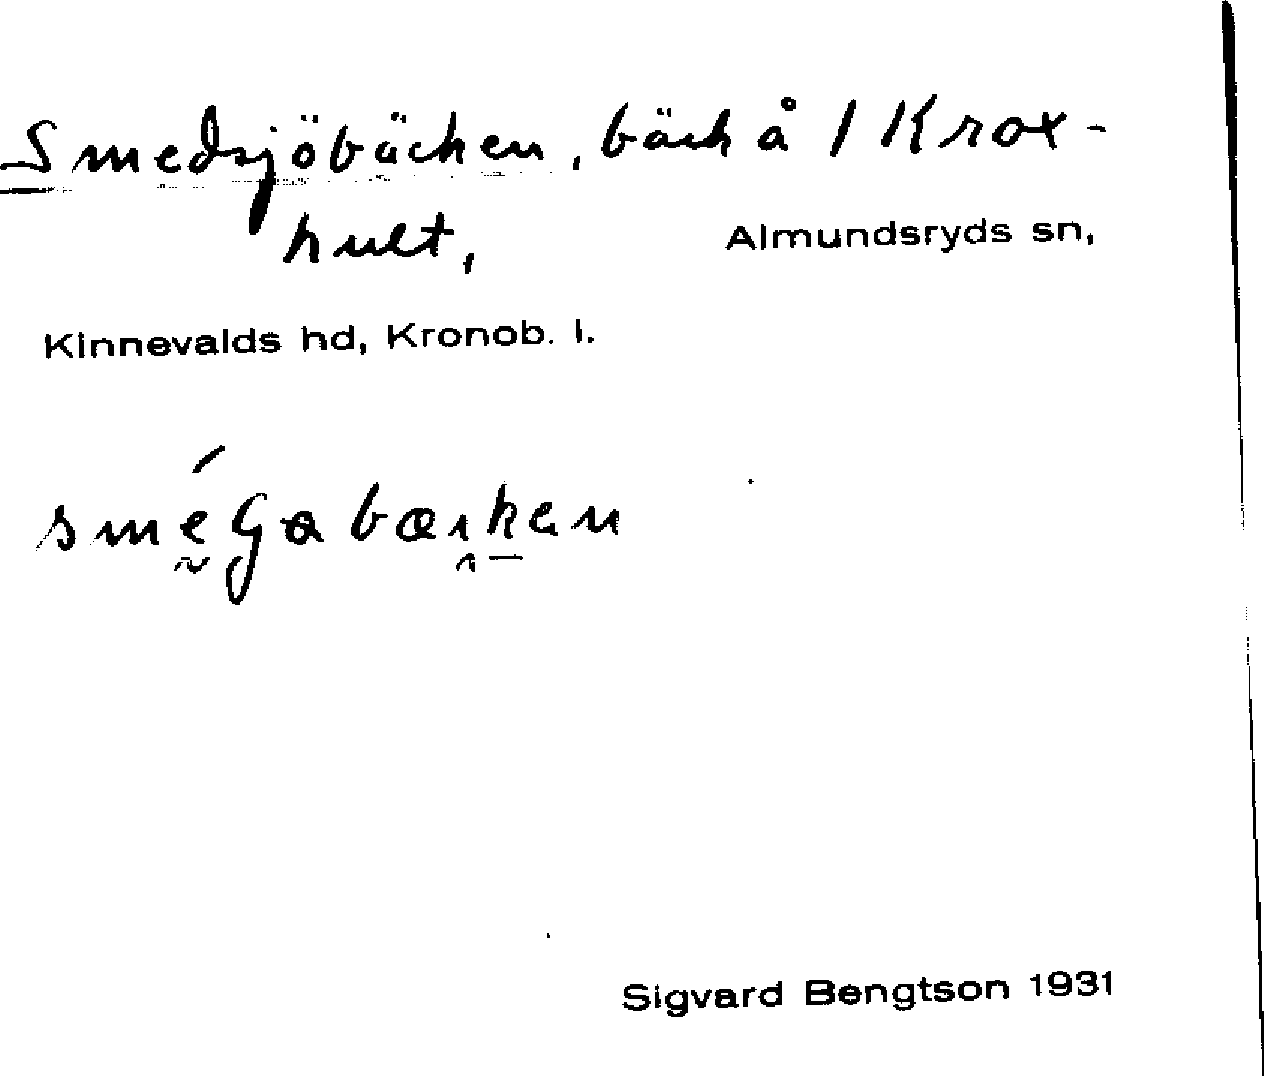 Smedsjöbäcken, bäck å 1 Krox-
hult, Almundsryds sn,
Kinnevalds hd, Kronob. l.
Sigvard Bengtson 1931